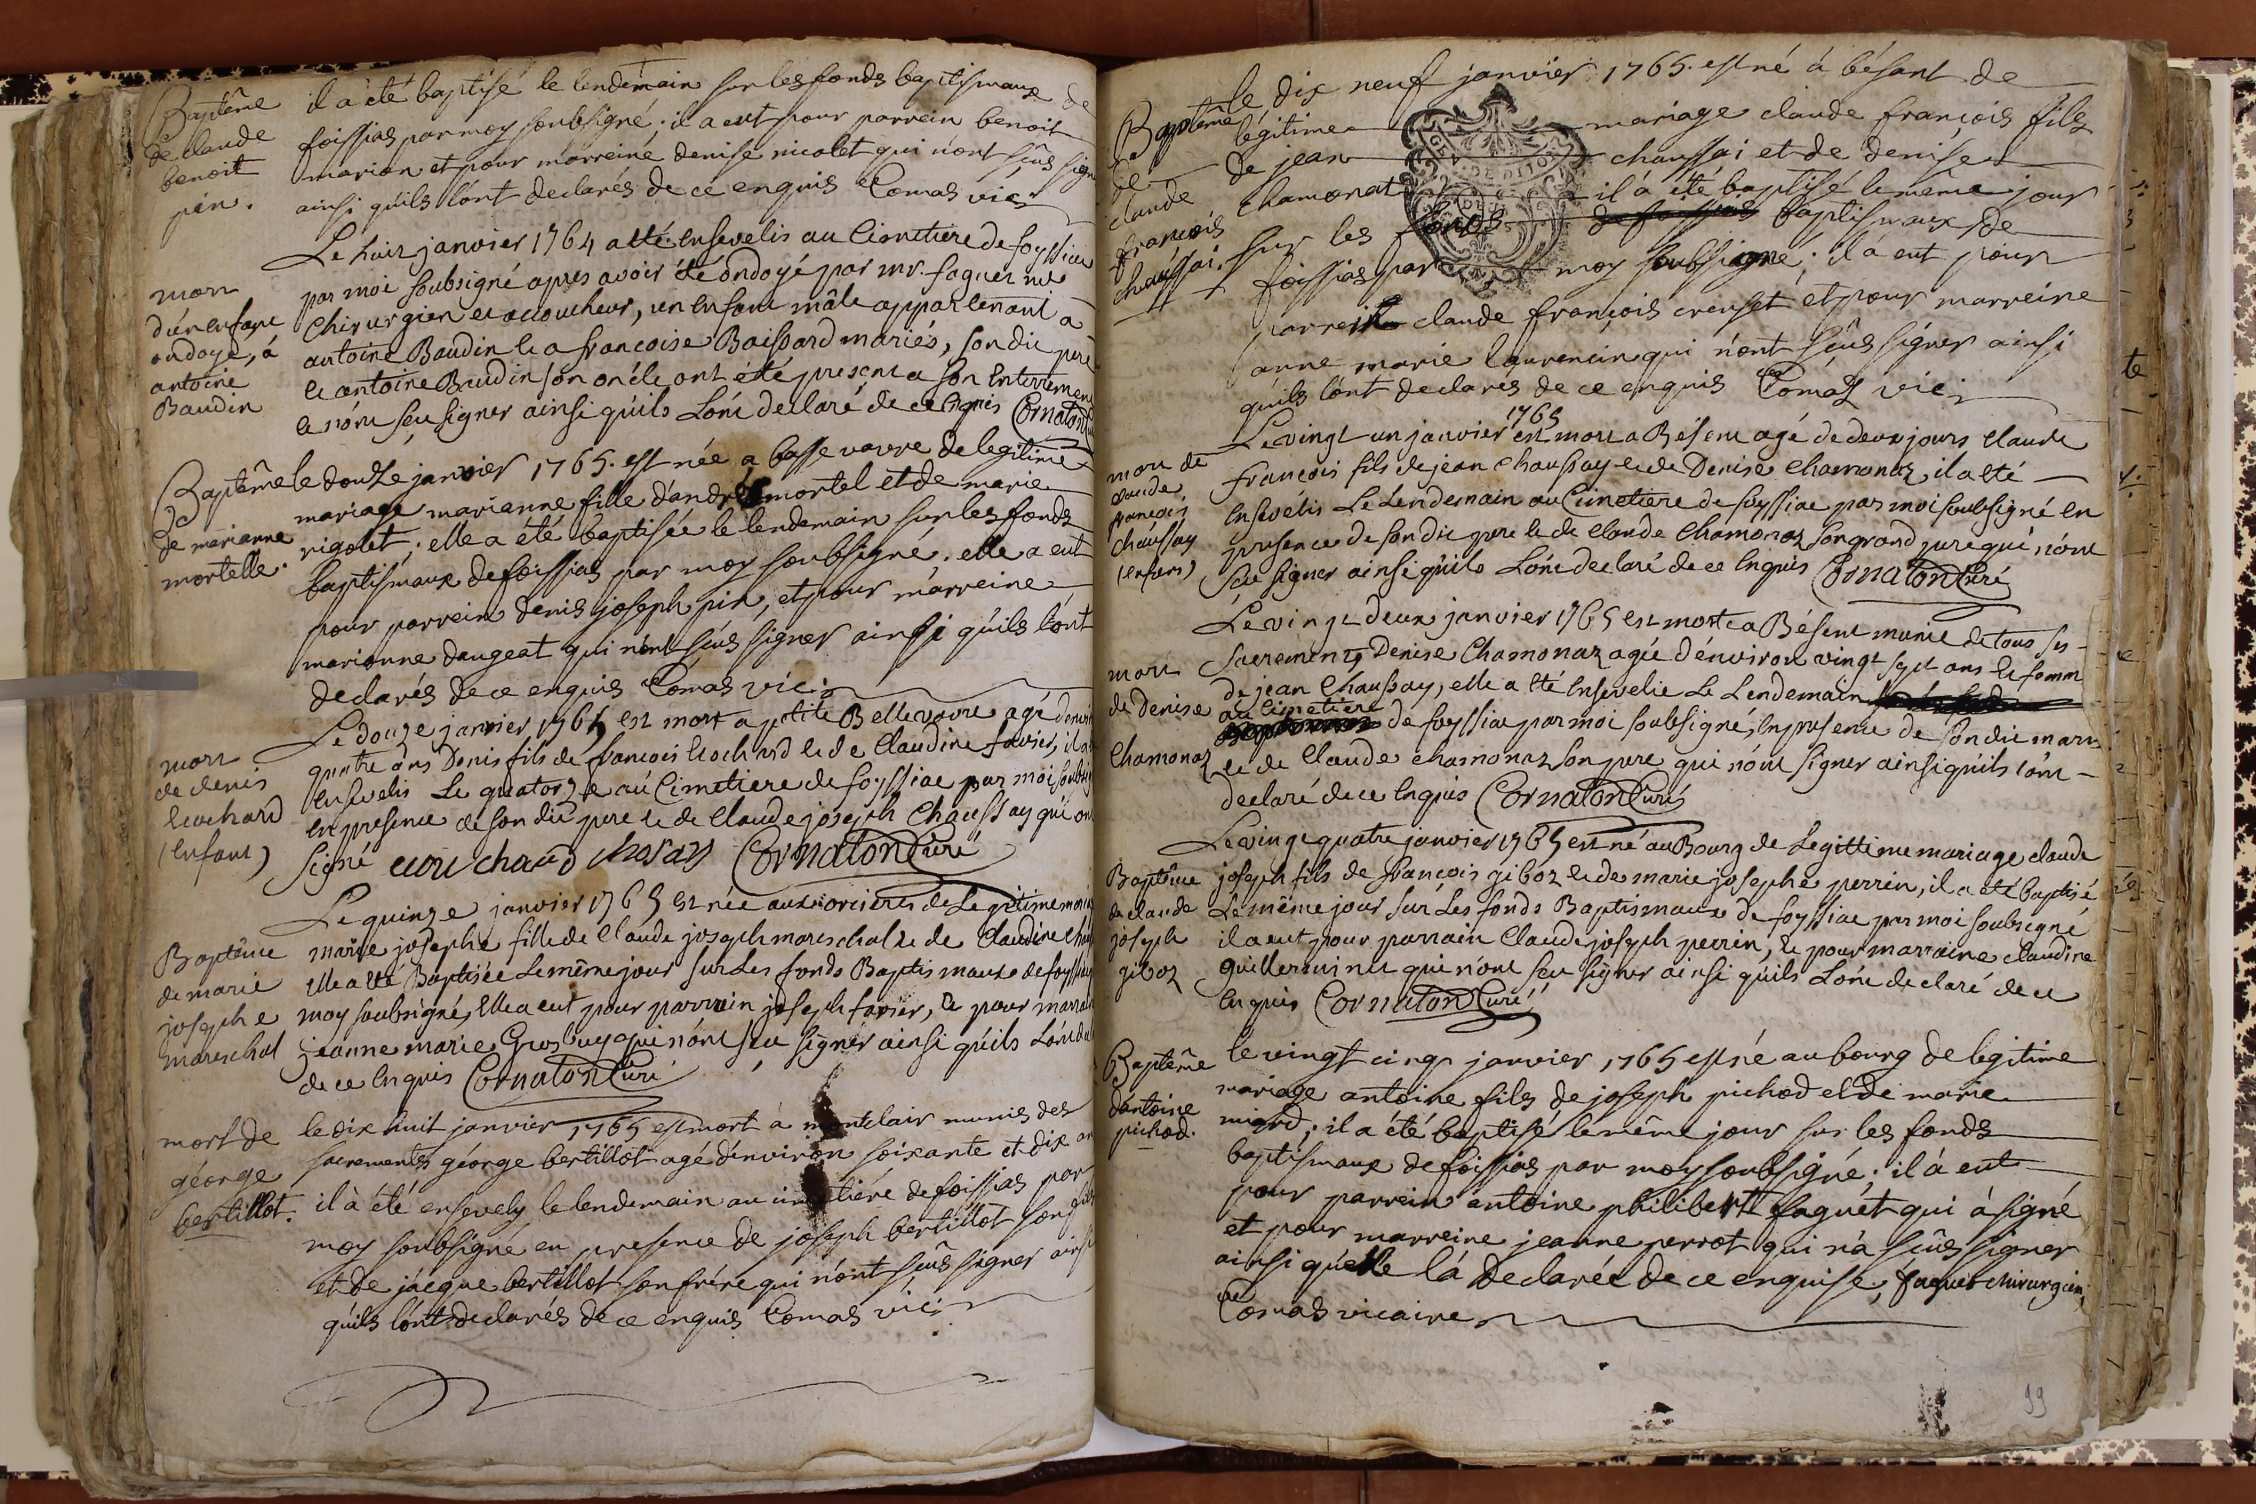 Baptême
de
de claude
benoit
pin.
il a été baptisé le lendemain sur les fonds baptismaux de
foissias par moy soubsigné ; il a eut pour parrein benoit
marion et pour marreine denise nicolet qui n'ont sçûs sign
ainsi qu'ils l'ont declarés de ce enquis Comas vic
mort
d'un enfant
ondoyé, à
antoine
Baudin
Le huit janvier 1764 a été Ensevelis au Cimetiere de foyssiac
par moi soubsigné apres avoir été ondoyé par mr. faguet me
Chirurgien et accoucheur, un Enfant mâle appartenant à
antoine Baudin et a francoise Baissard mariés, son dit pere
et antoine Baudin son oncle ont été present a son Enterrement
et n'ont sçu signer ainsi qu'ils L'ont declaré de ce Enquis Cornaton
Baptême
de
de marianne
mortelle.
le douze janvier 1765. est née a basse vavre de legitime
mariage marianne fille d'andré mortel et de marie
rigolet ; elle a été baptisée le lendemain sur les fonds
baptismaux de foissias par moy soubsigné, elle a eut
pour parrein denis joseph pin, et pour marreine
marianne daugeat qui n'ont sçûs signer ainsi qu'ils l'ont
declarés de ce enquis Comas vic
mort
de denis
Ecochard
(enfant)
Le douze janvier 1765 est mort a petite Bellevavre agé d'envi
quatre ans Denis fils de francois Ecochard et de Claudine favier, il a
Ensevelis Le quatorze au Cimetiere de foyssiac par moi soubsig
En presence de son dit pere et de Claude joseph Chaussay qui ont
signé Cornaton Curé
Baptême
de marie
josephe
mareschal
Le quinze janvier 1765 est née aux orcieres de Legitime mari
marie josephe fille de Claude joseph mareschal et de Claudine
Elle a été Baptisée Le même jour sur Les fonds Baptismaux de foyssia
moy soubsigné, Elle a eut pour parrain joseph favier, Et pour marrai
jeanne marie Grosbuy qui n'ont sçu signer ainsi qu'ils L'ont
de ce Enquis Cornaton Curé
mort de
géorge
bertillot.
le dix huit janvier 1765 est mort à montclair munis des
sacrements géorge bertillot agé d'environ soixante et dix an
il à été ensevely le lendemain au cimetiére de foissias par
moy soubsigné en presence de joseph bertillot son fils
et de jacque bertillot son frére qui n'ont sçûs signer ainsi
qu'ils l'ont declarés de ce enquis Comas vic
Baptême
de
de
claude
françois
chaussai.
le dix neuf janvier 1765. est né à bésant de
légitime mariage claude françois fils
de jean chaussai et de denise
chamonat il à été baptisé le même jour
sur les fonds baptismaux de
foissias par moy soubsigné ; il à eut pour
parrein claude françois creuset et pour marreine
anne marie laurencin qui n'ont sçûs signer ainsi
qu'ils l'ont declarés de ce enquis Comas vic
mort de
claude
françois
chaussay
(enfant)
1765
Le vingt un janvier est mort a Bésent agé de deux jours Claude
francois fils de jean Chaussay et de Denise Chamonaz il a été
Ensevelis Le Lendemain au Cimetiere de foyssiac par moi soubsigné En
presence de son dit pere et de Claude Chamonaz son grand pere qui n'ont
sçu signer ainsi qu'ils L'ont declaré de ce Enquis Cornaton Curé
mort
de denise
Chamonaz
Le vingt deux janvier 1765 est morte a Bésent munie de tous ses
Sacrements Denise Chamonaz agée d'environ vingt sept ans et femm
de jean Chaussay, elle a été Ensevelie Le Lendemain
au Cimetiere
de foyssiac par moi soubsigné, En presence de son dit mary
et de Claude Chamonaz son pere qui n'ont signer ainsi qu'ils l'ont
declaré de ce Enquis Cornaton Curé
Baptême
de claude
joseph
giboz
Le vingt quatre janvier 1765 est né au Bourg de Legittime mariage claude
joseph fils de francois giboz et de marie josephe perrin, il a été baptisé
Le même jour sur Les fonds Baptismaux de foyssiac par moi soubsigné
il a eut pour parrain Claude joseph perrin, Et pour marraine claudine
qui n'ont sçu signer ainsi qu'ils L'ont declaré de ce
Enquis Cornaton Curé
Baptême
d'antoine
pichod.
le vingt cinq janvier 1765 est né au bourg de legitime
mariage antoine fils de joseph pichod et de marie
migrd ; il a été baptisé le même jour sur les fonds
baptismaux de foissias par moy soubsigné ; il à eut
pour parrein antoine philibert faguét qui à signé
et pour marreine jeanne perrot qui n'a sçûs signer
ainsi qu'elle l'à declarée de ce enquise, faguet chirurgien
Comas vicaire
99